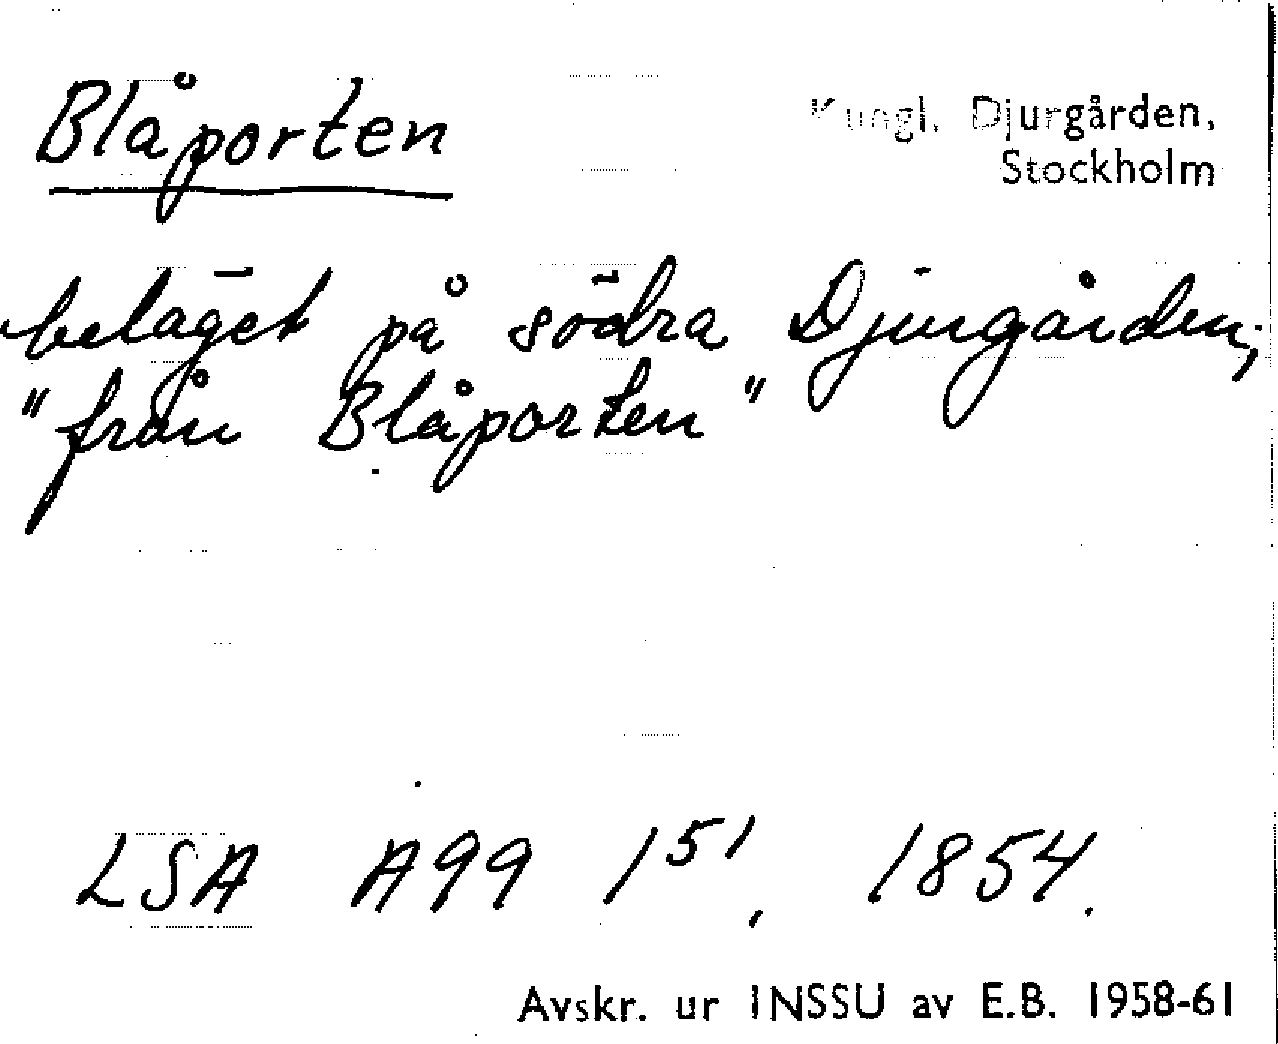 Blåporten
Kungl. Djurgården,
Stockholm
beläget på södra Djurgården;
"från Blåporten"
LSA A99 1⁵¹, 1854.
Avskr. ur INSSU av E.B. 1958-61